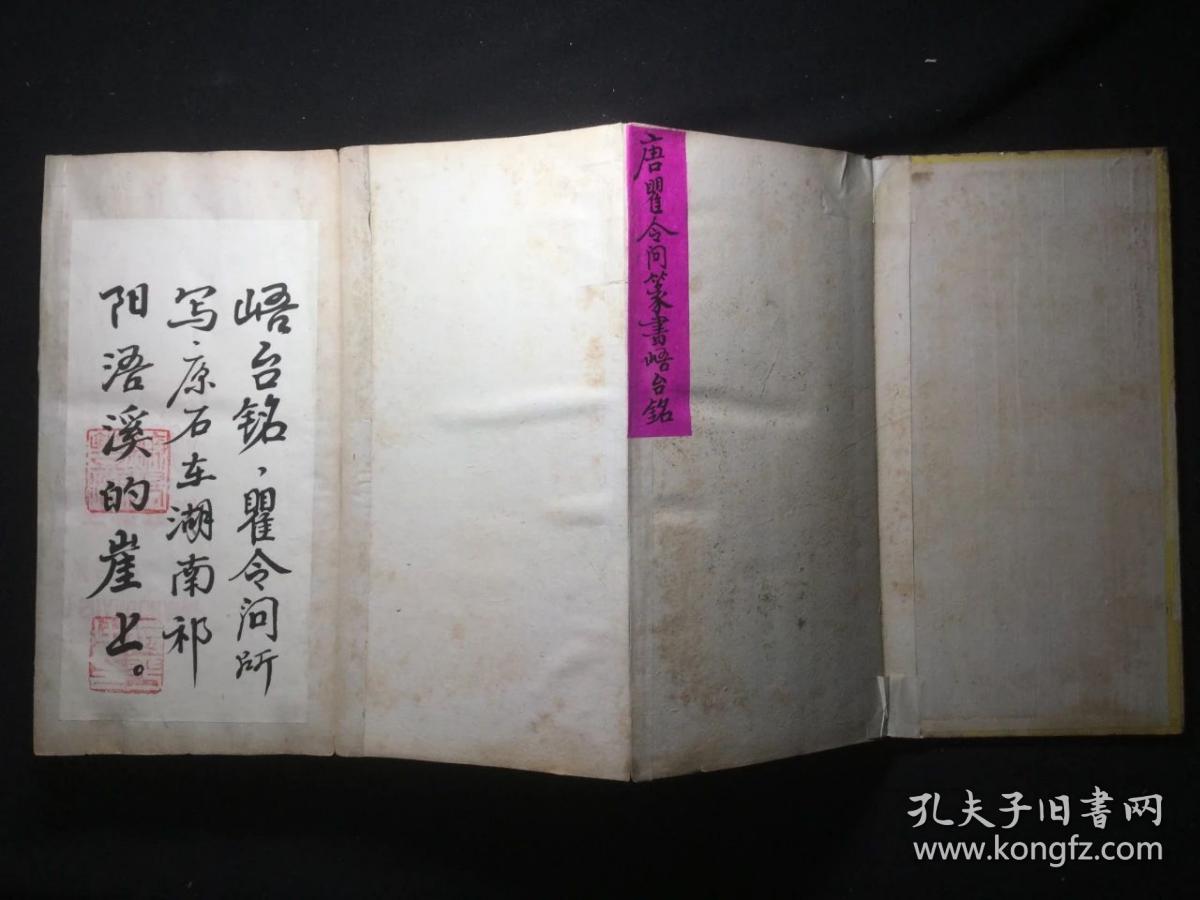 唐瞿令问篆書峿台銘
峿台铭、瞿令问所
写、原石在湖南祁
阳浯溪的崖上。
孔夫子旧书网
www.kongfz.com